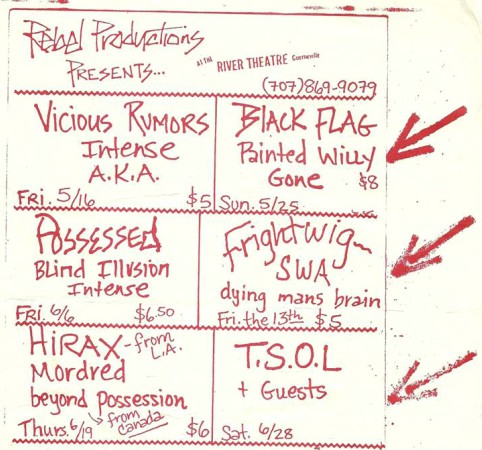 Rebel Productions
PRESENTS...
AT THE RIVER THEATRE Guerneville
(707)869-9079
VICIOUS RUMORS
Intense
A.K.A.
FRI. 5/16 $5
BLACK FLAG
Painted Willy
Gone $8
Sun. 5/25
POSSESSED
BLIND ILLUSION
Intense
FRI. 6/6 $6.50
Frightwig
SWA
dying mans brain
Fri. the 13th $5
HIRAX - from L.A.
Mordred
beyond possession
from Canada
Thurs. 6/19 $6
T.S.O.L
+ Guests
Sat. 6/28